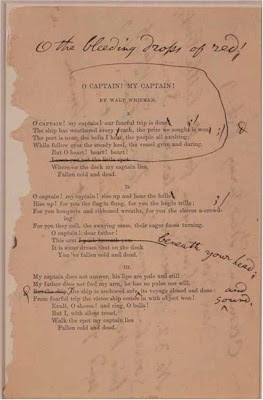 O the bleeding drops of red!
O CAPTAIN! MY CAPTAIN!
BY WALT WHITMAN.
I.
O CAPTAIN! my captain! our fearful trip is done
The ship has weathered every the prize we sought is won
The port is near, the bells I hear, the people all exulting;
While follow eyes the steady keel, the vessel grim and daring.
But O heart! heart! heart!
Leave you not the little spot
Where on the deck my captain lies,
Fallen cold and dead.
II.
O captain! my captain! rise up and hear the bells
Rise up! for you the flag is flung, for you the bugle trills:
For you bouquets and ribboned wreaths, for you the shores a-crowd-
ing:
For you they call, the swaying mass, their eager faces turning.
O captain! dear father!
This arm
beneath your head;
It is some dream that on the deck
You've fallen cold and dead.
III.
My captain does not answer, his lips are pale and still:
My father does not feel my arm, he has no pulse nor will.
and
But the ship, The ship is anchored safe, its voyage closed and done:
sound.
From fearful trip the victor ship comes in with object won!
Exult, O shores! and ring, O bells!
But I, with silent tread,
Walk the spot my captain lies
Fallen cold and dead.